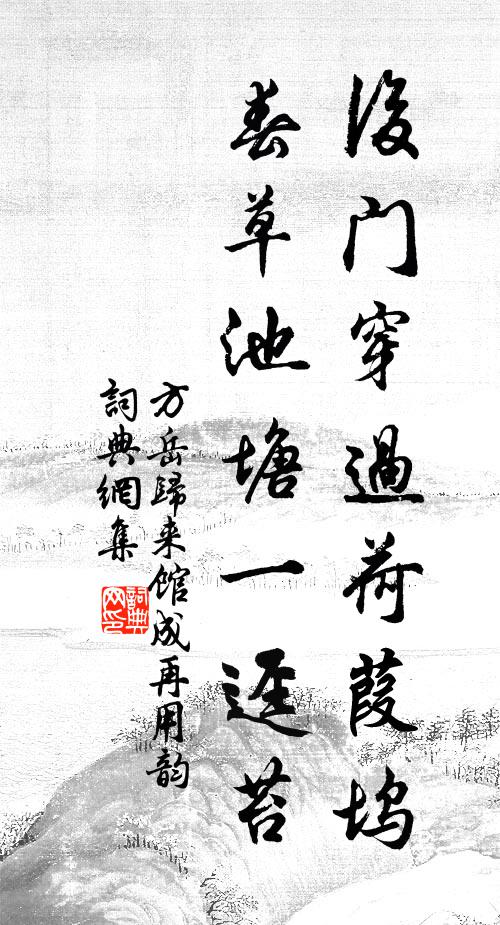 後門穿過荷葭塢
春草池塘一逕苔
方岳歸来館成再用韵
詞典網集
詞典网印